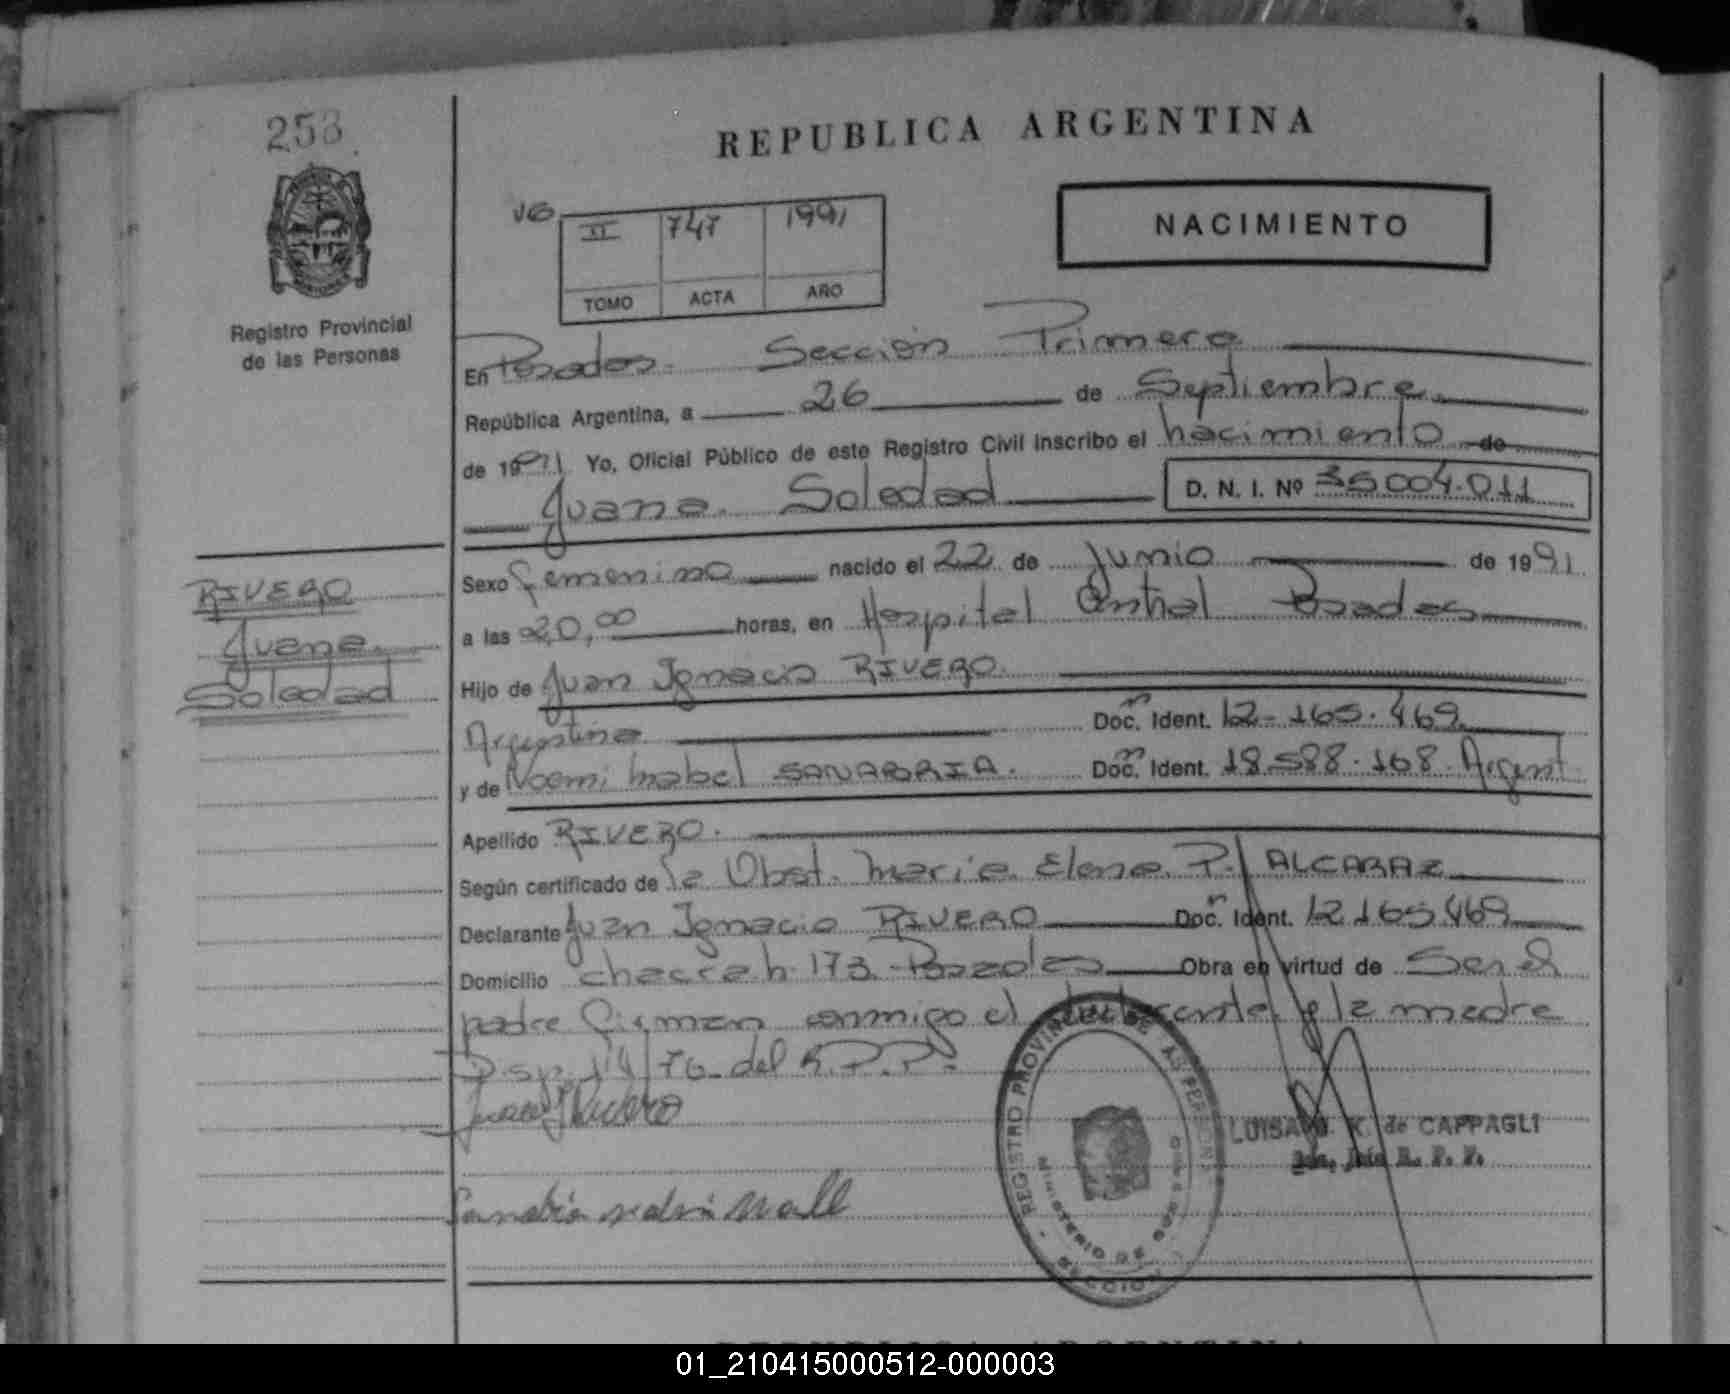 253
REPUBLICA ARGENTINA
II 747 1991
TOMO ACTA AÑO
NACIMIENTO
Registro Provincial
de las Personas
En Posadas. Sección Primera
República Argentina, a 26 de Septiembre
de 1991 Yo, Oficial Público de este Registro Civil inscribo el nacimiento de
Juana Soledad D. N. I. Nº 35.004.011
RIVERO
Juana
Soledad
Sexo femenino nacido el 22 de Junio de 1991
a las 20,00 horas, en Hospital Central Posadas
Hijo de Juan Ignacio RIVERO.
Argentino Doc. Ident. 12.165.469
y de Noemi Mabel SANABRIA. Doc. Ident. 18.588.168. Argent
Apellido RIVERO.
Según certificado de la Obst. Maria Elena P. ALCARAZ
Declarante Juan Ignacio RIVERO Doc. Ident. 12.165.469
Domicilio chacra h. 173 - Posadas Obra en virtud de Ser el
padre Firman conmigo el declarante y la madre
Disp. 14/76 del R.P.P.
Juan I Rivero
REGISTRO PROVINCIAL DE LAS PERSONAS
MINISTERIO DE GOBIERNO
SECCION
LUISA K. de CAPPAGLI
R. P. P.
REPUBLICA ARGENTINA
01_210415000512-000003